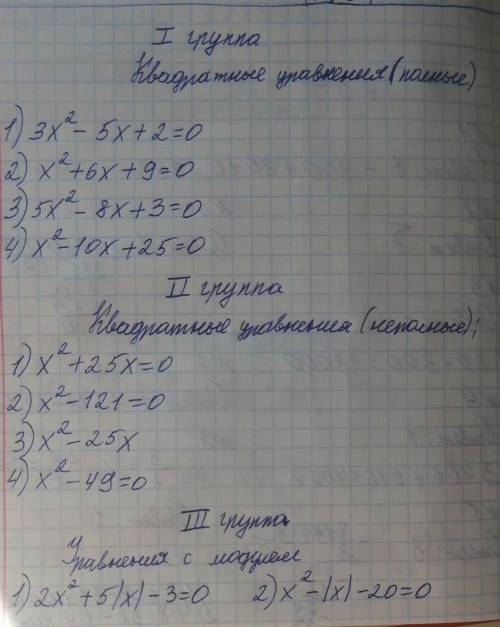 I группа
Квадратные уравнения (полные)
1) 3x² - 5x + 2 = 0
2) x² + 6x + 9 = 0
3) 5x² - 8x + 3 = 0
4) x² - 10x + 25 = 0
II группа
Квадратные уравнения (неполные);
1) x² + 25x = 0
2) x² - 121 = 0
3) x² - 25x
4) x² - 49 = 0
III группа
Уравнения с модулем
1) 2x² + 5|x| - 3 = 0 2) x² - |x| - 20 = 0